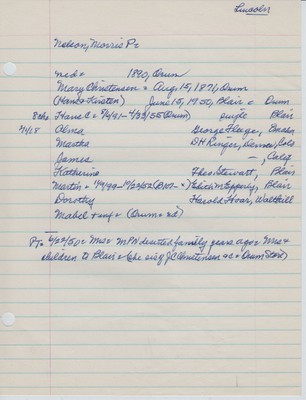 Lincoln
Nelson, Morris P=
ncd= 1890, Orum
Mary Christensen = Aug. 15, 1871, Orum
(Hans & Kirsten) June 15, 1950, Blair = Orum
Echo Hans C = 9/4/91-4/23/55 (Orum) single Blair
7/1/18 Alma George Fluge, Baahn
Martha DH Ringer, Denver, Colo
James -, Calif
Katherine Theo Stewart, Blair
Martin = Blair
Dorothy Harold Hoar, Walthill
Mabel + inf = (Orum = nd)
PT= 6/22/50 = Mrs = MPN deserted family years ago = Mrs +
children to Blair = (she sis of JC Christensen ac = Orum Store)